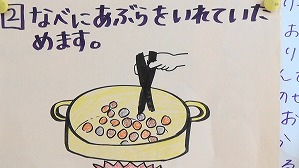 2 なべにあぶらをいれていた
めます。